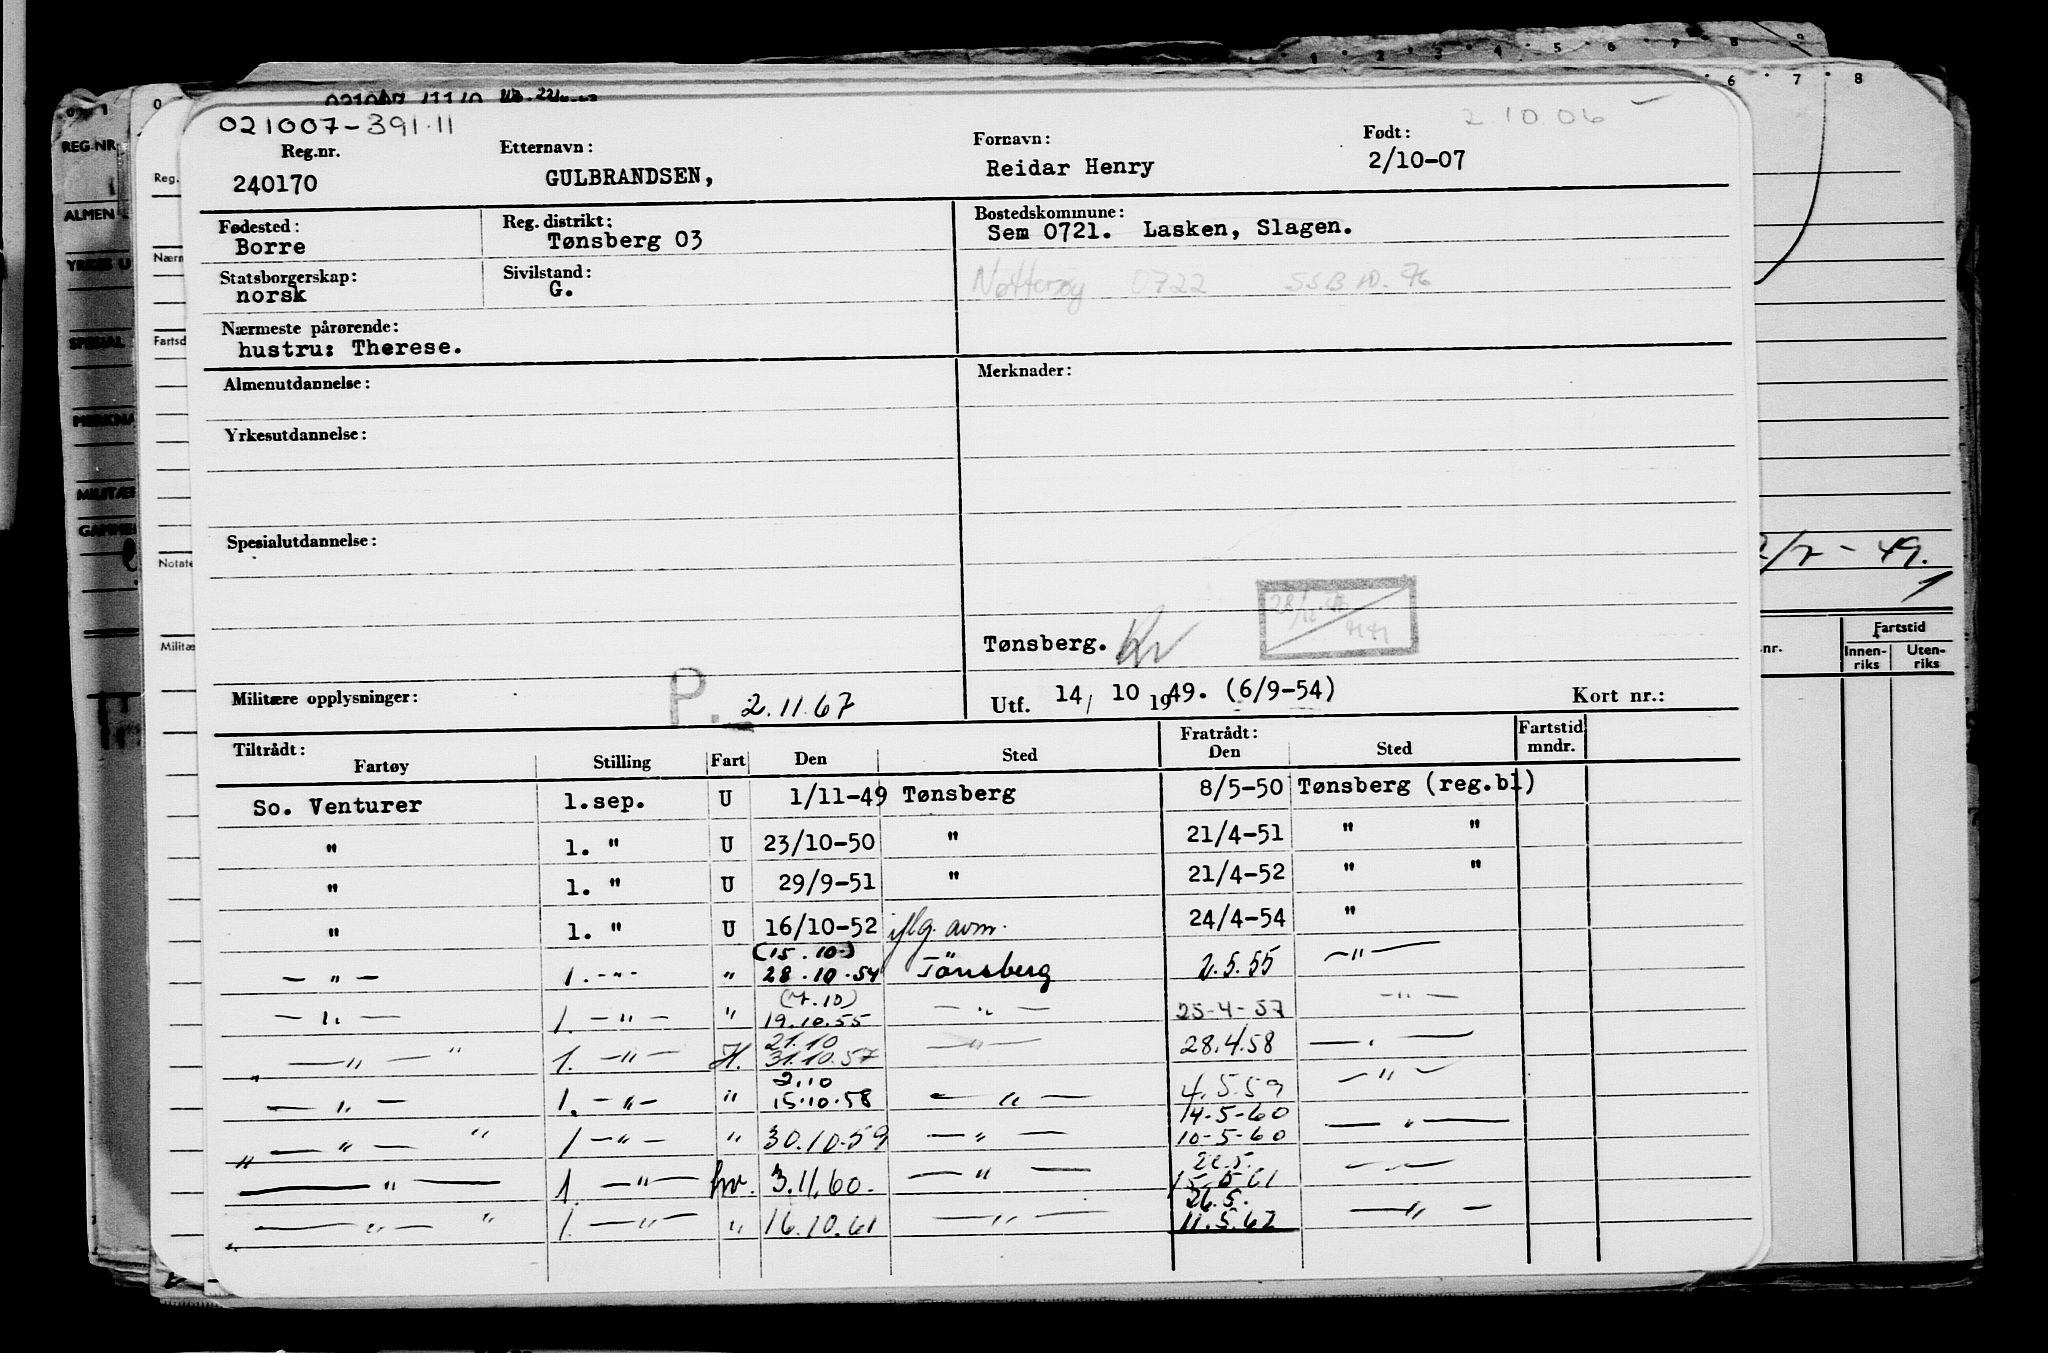 021007-391.11
2.10.06
Reg.nr. Etternavn: Fornavn: Født:
240170 GULBRANDSEN, Reidar Henry 2/10-07
Fødested: Reg. distrikt: Bostedskommune:
Borre Tønsberg 03 Sem 0721. Lasken, Slagen.
Statsborgerskap: Sivilstand:
norsk G. Nøtterøy 0722 SSB 10.76
Nærmeste pårørende:
hustru: Therese.
Almenutdannelse: Merknader:
Yrkesutdannelse:
Spesialutdannelse:
Tønsberg.
Militære opplysninger: P. 2.11.67 Utf. 14/ 10 1949. (6/9-54) Kort nr.:
Tiltrådt: Fratrådt: Fartstid
Fartøy Stilling Fart Den Sted Den Sted mndr.
So. Venturer 1.sep. U 1/11-49 Tønsberg 8/5-50 Tønsberg (reg.bl)
" 1. " U 23/10-50 " 21/4-51 " "
" 1. " U 29/9-51 " 21/4-52 " "
" 1. " U 16/10-52 iflg. avm. 24/4-54 "
(15.10)
— " — 1. -"- " 28.10.54 Tönsberg 2.5.55 —"—
— " — 1. —"— " 19.10.55 — " — 25-4-57 —"—
21.10
" —"— " 1. —"— H. 31.10.57 —"— 28.4.58 — " —
2.10
— " — 1. —"— " 15.10.58 — " — 4.5.59 —"—
14-5-60
" — " — " 1 —"— " 30.10.59 — " — 10-5-60 — " —
— " — 1. —"— hv. 3.11.60. — " — 15.5.61 —"—
26.5.
" — " — " 1. —"— " 16.10.61 — " — 11.5.62 —"—
REG.NR
ALMEN
YRKES U
SPESIAL
MERKNA
MILITÆR
GAMMEL
Reg.
Nærm
Fartsd
Notate
Militæ
2/7-49.
Fartstid
.nr. Innen-riks Uten-riks